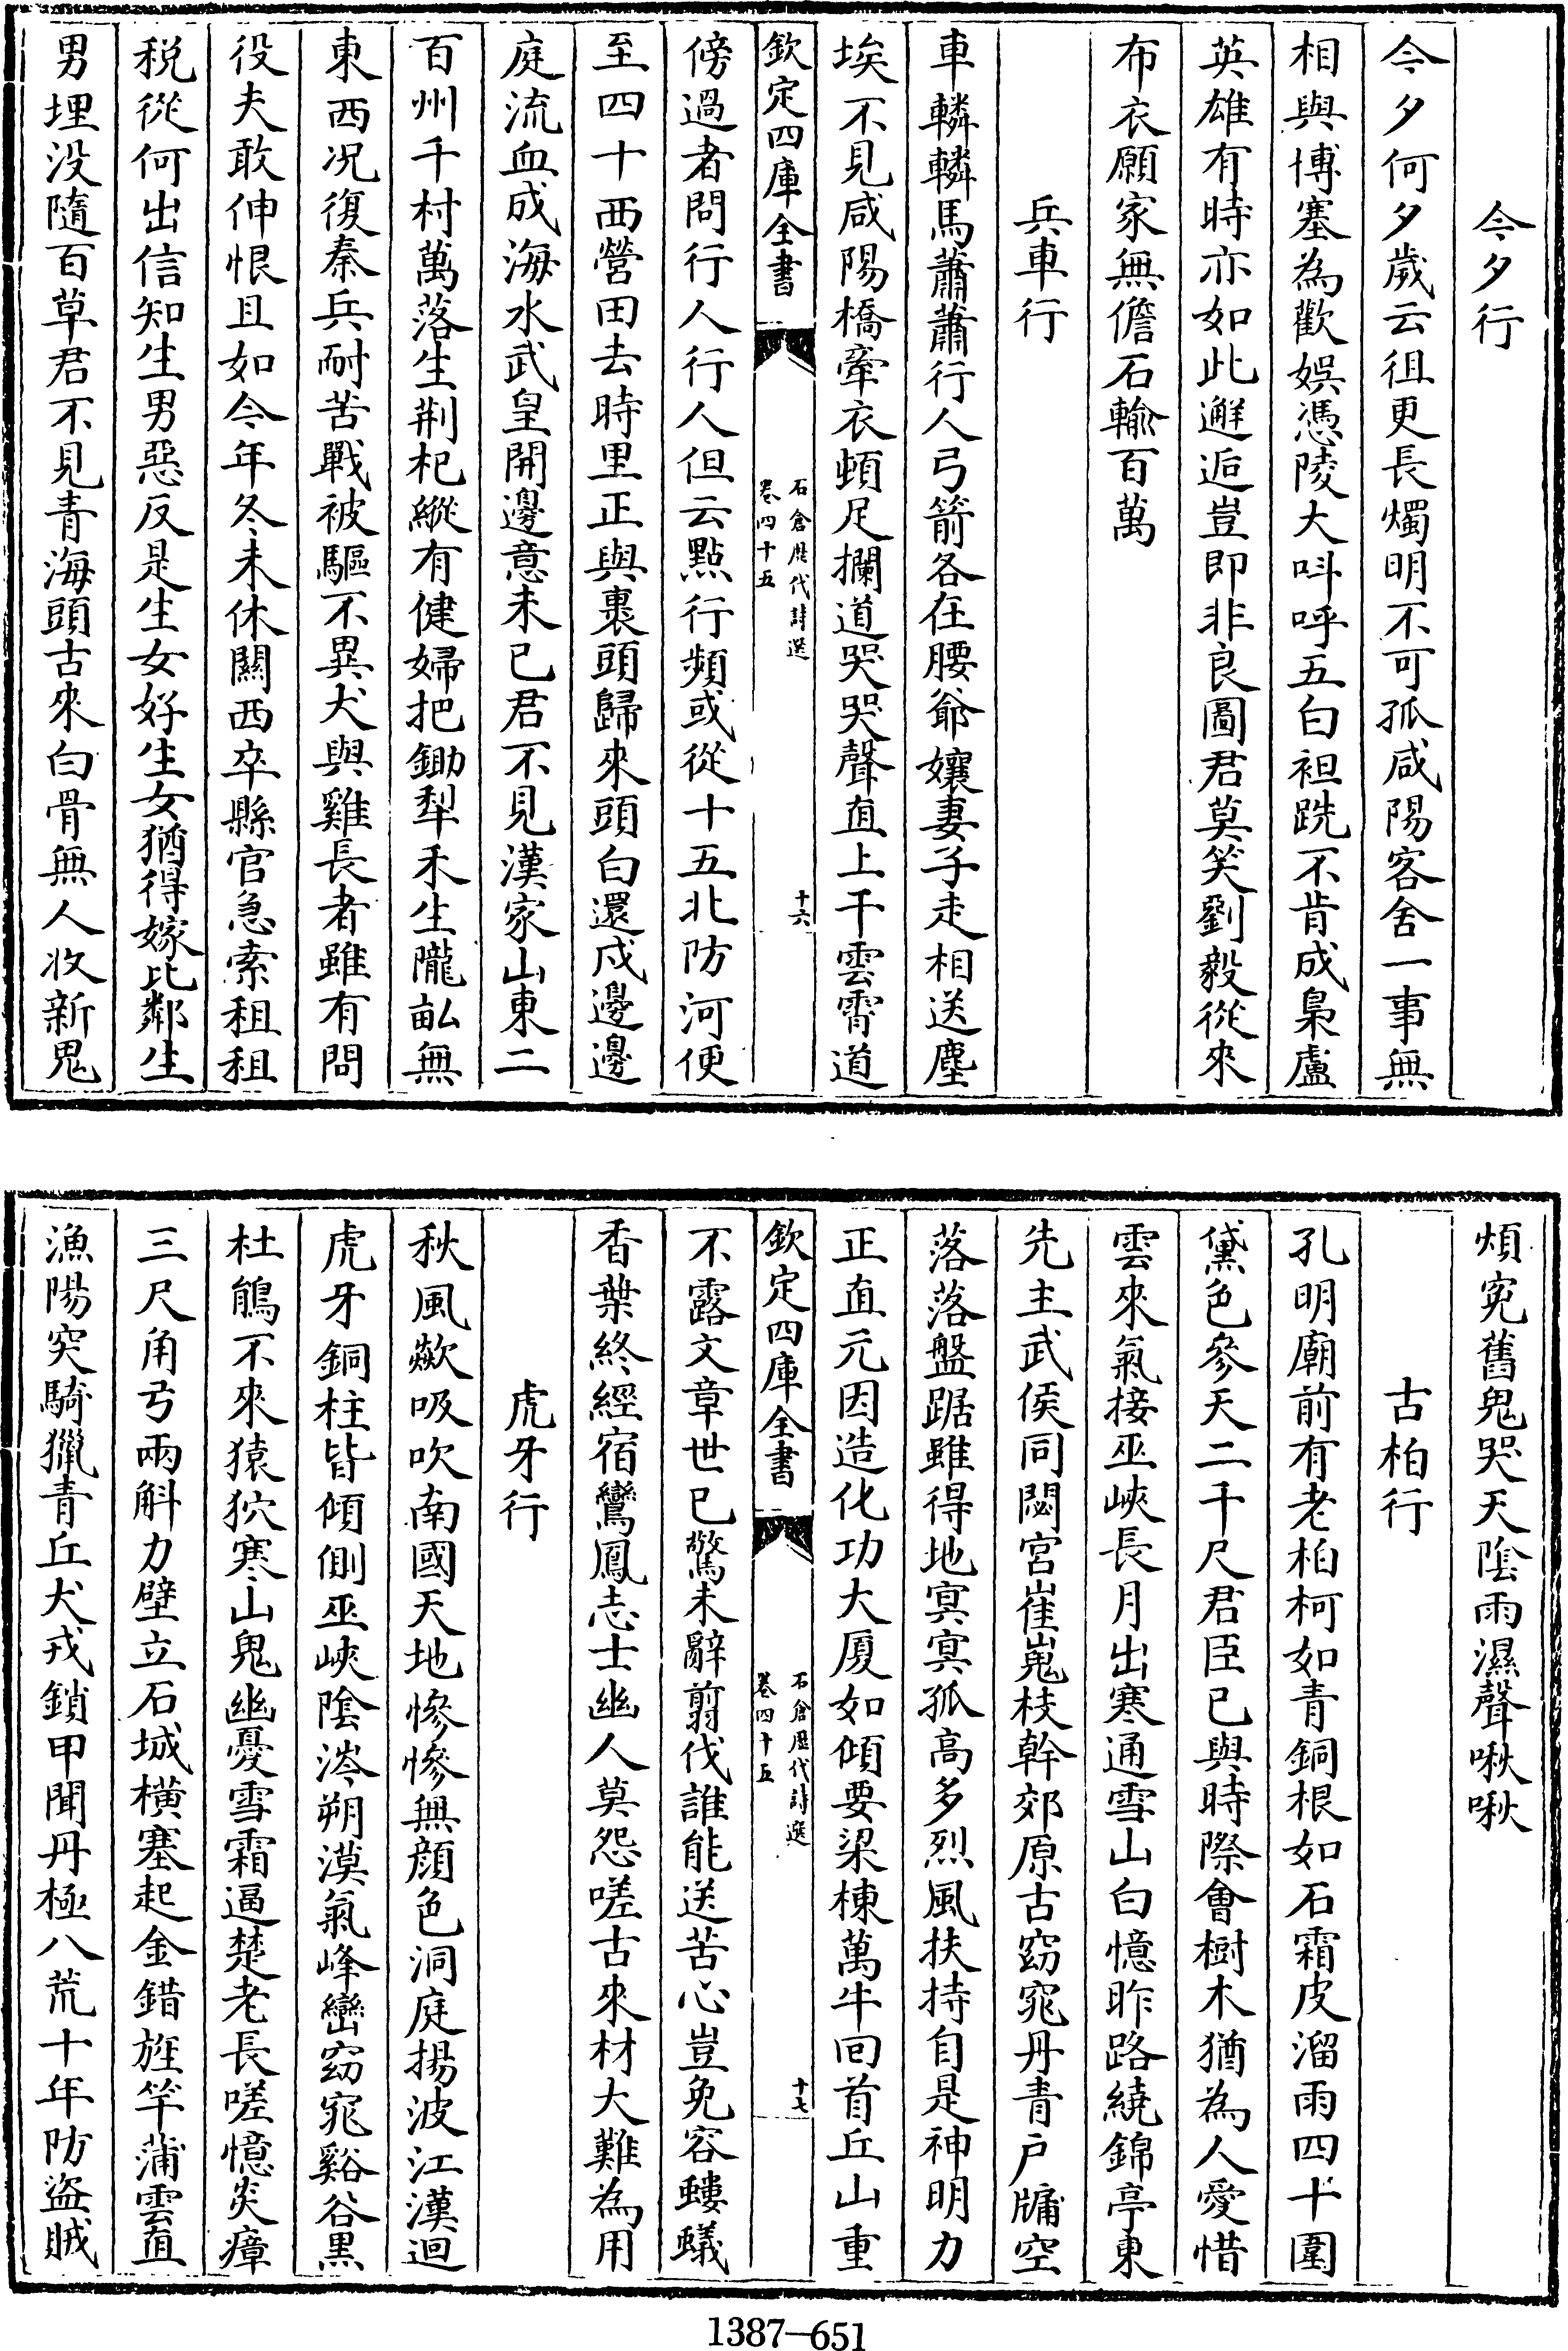 今夕行
今夕何夕歲云徂更長燭明不可孤咸陽客舍一事無
相與博塞為歡娱馮陵大呌呼五白袒跣不肯成梟盧
英雄有時亦如此邂逅豈即非良圖君莫笑劉毅從來
布衣願家無儋石輸百萬
兵車行
車轔轔馬蕭蕭行人弓箭各在腰爺孃妻子走相送塵
埃不見咸陽橋牽衣頓足攔道哭哭聲直上干雲霄道
欽定四庫全書
石倉歷代詩選
卷四十五
十六
傍過者問行人行人但云點行頻或從十五北防河便
至四十西營田去時里正與裹頭歸來頭白還戍邊邊
庭流血成海水武皇開邊意未已君不見漢家山東二
百州千村萬落生荆杞縱有健婦把鋤犁禾生隴畝無
東西况復秦兵耐苦戰被驅不異犬與雞長者雖有問
役夫敢伸恨且如今年冬未休關西卒縣官急索租租
税從何出信知生男惡反是生女好生女猶得嫁比鄰生
男埋没隨百草君不見青海頭古來白骨無人收新鬼
煩寃舊鬼哭天陰雨濕聲啾啾
古柏行
孔明廟前有老柏柯如青銅根如石霜皮溜雨四十圍
黛色參天二千尺君臣已與時際會樹木猶為人愛惜
雲來氣接巫峽長月出寒通雪山白憶昨路繞錦亭東
先主武侯同閟宮崔嵬枝幹郊原古窈窕丹青户牖空
落落盤踞雖得地冥冥孤高多烈風扶持自是神明力
正直元因造化功大厦如傾要梁棟萬牛回首丘山重
欽定四庫全書
石倉歷代詩選
卷四十五
十七
不露文章世已驚未辭翦伐誰能送苦心豈免容螻蟻
香葉終經宿鸞鳳志士幽人莫怨嗟古來材大難為用
虎牙行
秋風欻吸吹南國天地慘慘無顔色洞庭揚波江漢迴
虎牙銅柱皆傾側巫峽陰涔朔漠氣峰巒窈窕谿谷黑
杜鵑不來猿狖寒山鬼幽憂雪霜逼楚老長嗟憶炎瘴
三尺角弓兩斛力壁立石城横塞起金錯旌竿蒲雲直
漁陽突騎獵青丘犬戎鎖甲聞丹極八荒十年防盜賊
1387—651